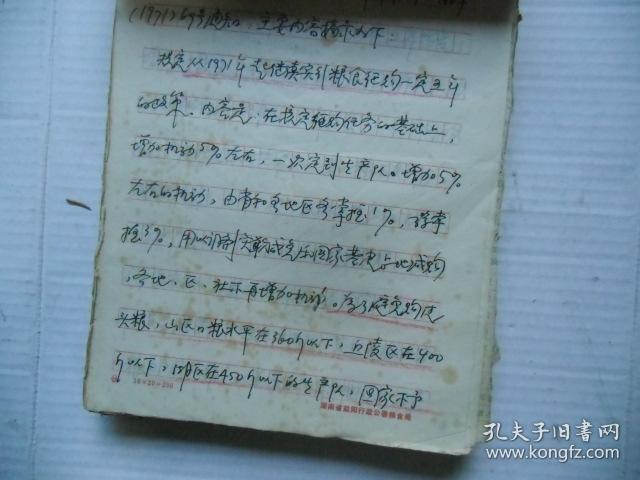 (1971) 号通知，主要内容摘示如下
规定从1971年起继续实行粮食征购一定五年
的政策。内容是：在核定征购任务的基础上，
增加机动5%左右，一次定到生产队。增加5%
左右的机动，由省和各地区各掌握1%，
握3%，用以调剂灾歉减免
，各地、区、社不再增加机动。为了避免购过
头粮，山区口粮水平在360斤以下，丘陵区在400
斤以下，湖区在450斤以下的生产队，国家不予
18×20=360
湖南省益阳行政公署粮食局
孔夫子旧书网
www.kongfz.com